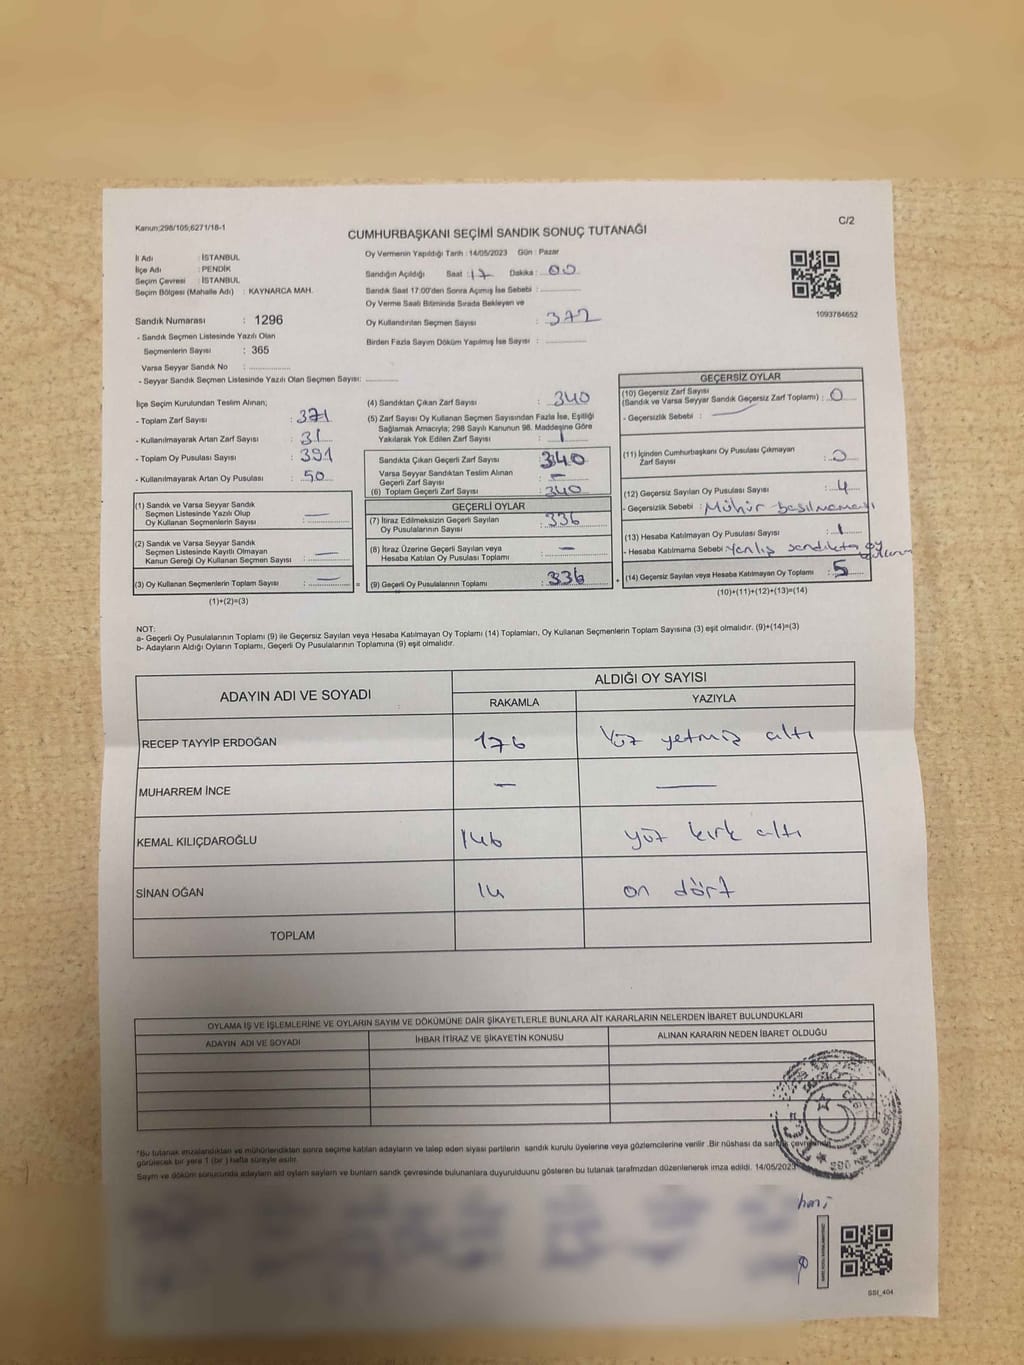 Kanun;298/105;6271/18-1
C/2
CUMHURBAŞKANI SEÇİMİ SANDIK SONUÇ TUTANAĞI
İl Adı : İSTANBUL
İlçe Adı : PENDİK
Seçim Çevresi : İSTANBUL
Seçim Bölgesi (Mahalle Adı) : KAYNARCA MAH.
Oy Vermenin Yapıldığı Tarih : 14/05/2023 Gün : Pazar
Sandığın Açıldığı Saat : 17 Dakika : 00
Sandık Saat 17:00'den Sonra Açmış İse Sebebi :
Oy Verme Saati Bitiminde Sırada Bekleyen ve
Oy Kullandırılan Seçmen Sayısı :
Birden Fazla Sayım Döküm Yapılmış İse Sayısı :
1093784652
Sandık Numarası : 1296
- Sandık Seçmen Listesinde Yazılı Olan
Seçmenlerin Sayısı : 365
Varsa Seyyar Sandık No :
- Seyyar Sandık Seçmen Listesinde Yazılı Olan Seçmen Sayısı:
İlçe Seçim Kurulundan Teslim Alınan;
- Toplam Zarf Sayısı : 371
- Kullanılmayarak Artan Zarf Sayısı : 31
- Toplam Oy Pusulası Sayısı : 391
- Kullanılmayarak Artan Oy Pusulası : 50
(1) Sandık ve Varsa Seyyar Sandık
Seçmen Listesinde Yazılı Olup
Oy Kullanan Seçmenlerin Sayısı : —
(2) Sandık ve Varsa Seyyar Sandık
Seçmen Listesinde Kayıtlı Olmayan
Kanun Gereği Oy Kullanan Seçmen Sayısı : —
(3) Oy Kullanan Seçmenlerin Toplam Sayısı : —
(1)+(2)=(3)
(4) Sandıktan Çıkan Zarf Sayısı : 340
(5) Zarf Sayısı Oy Kullanan Seçmen Sayısından Fazla İse, Eşitliği
Sağlamak Amacıyla; 298 Sayılı Kanunun 98. Maddesine Göre
Yakılarak Yok Edilen Zarf Sayısı :
Sandıkta Çıkan Geçerli Zarf Sayısı : 340
Varsa Seyyar Sandıktan Teslim Alınan
Geçerli Zarf Sayısı : —
(6) Toplam Geçerli Zarf Sayısı : 340
GEÇERLİ OYLAR
(7) İtiraz Edilmeksizin Geçerli Sayılan
Oy Pusulalarının Sayısı : 336
(8) İtiraz Üzerine Geçerli Sayılan veya
Hesaba Katılan Oy Pusulaları Toplamı : —
(9) Geçerli Oy Pusulalarının Toplamı : 336
GEÇERSİZ OYLAR
(10) Geçersiz Zarf Sayısı
(Sandık ve Varsa Seyyar Sandık Geçersiz Zarf Toplamı) : 0
- Geçersizlik Sebebi : —
(11) İçinden Cumhurbaşkanı Oy Pusulası Çıkmayan
Zarf Sayısı : 0
(12) Geçersiz Sayılan Oy Pusulası Sayısı : 4
- Geçersizlik Sebebi : Mühür basılmaması
(13) Hesaba Katılmayan Oy Pusulası Sayısı : 1
- Hesaba Katılmama Sebebi : Yanlış sandıkta oy
(14) Geçersiz Sayılan veya Hesaba Katılmayan Oy Toplamı : 5
(10)+(11)+(12)+(13)=(14)
NOT:
a- Geçerli Oy Pusulalarının Toplamı (9) ile Geçersiz Sayılan veya Hesaba Katılmayan Oy Toplamı (14) Toplamları, Oy Kullanan Seçmenlerin Toplam Sayısına (3) eşit olmalıdır. (9)+(14)=(3)
b- Adayların Aldığı Oyların Toplamı, Geçerli Oy Pusulalarının Toplamına (9) eşit olmalıdır.
ADAYIN ADI VE SOYADI
ALDIĞI OY SAYISI
RAKAMLA YAZIYLA
RECEP TAYYİP ERDOĞAN 176 Yüz yetmiş altı
MUHARREM İNCE — —
KEMAL KILIÇDAROĞLU 146 yüz kırk altı
SİNAN OĞAN 14 on dört
TOPLAM
OYLAMA İŞ VE İŞLEMLERİNE VE OYLARIN SAYIM VE DÖKÜMÜNE DAİR ŞİKAYETLERLE BUNLARA AİT KARARLARIN NELERDEN İBARET BULUNDUKLARI
ADAYIN ADI VE SOYADI İHBAR İTİRAZ VE ŞİKAYETİN KONUSU ALINAN KARARIN NEDEN İBARET OLDUĞU
*Bu tutanak imzalandıktan ve mühürlendikten sonra seçime katılan adayların ve talep eden siyasi partilerin sandık kurulu üyelerine veya gözlemcilerine verilir .Bir nüshası da sandık çevresinde
görülecek bir yere 1 (bir ) hafta süreyle asılır.
14/05/2023
SSI_404